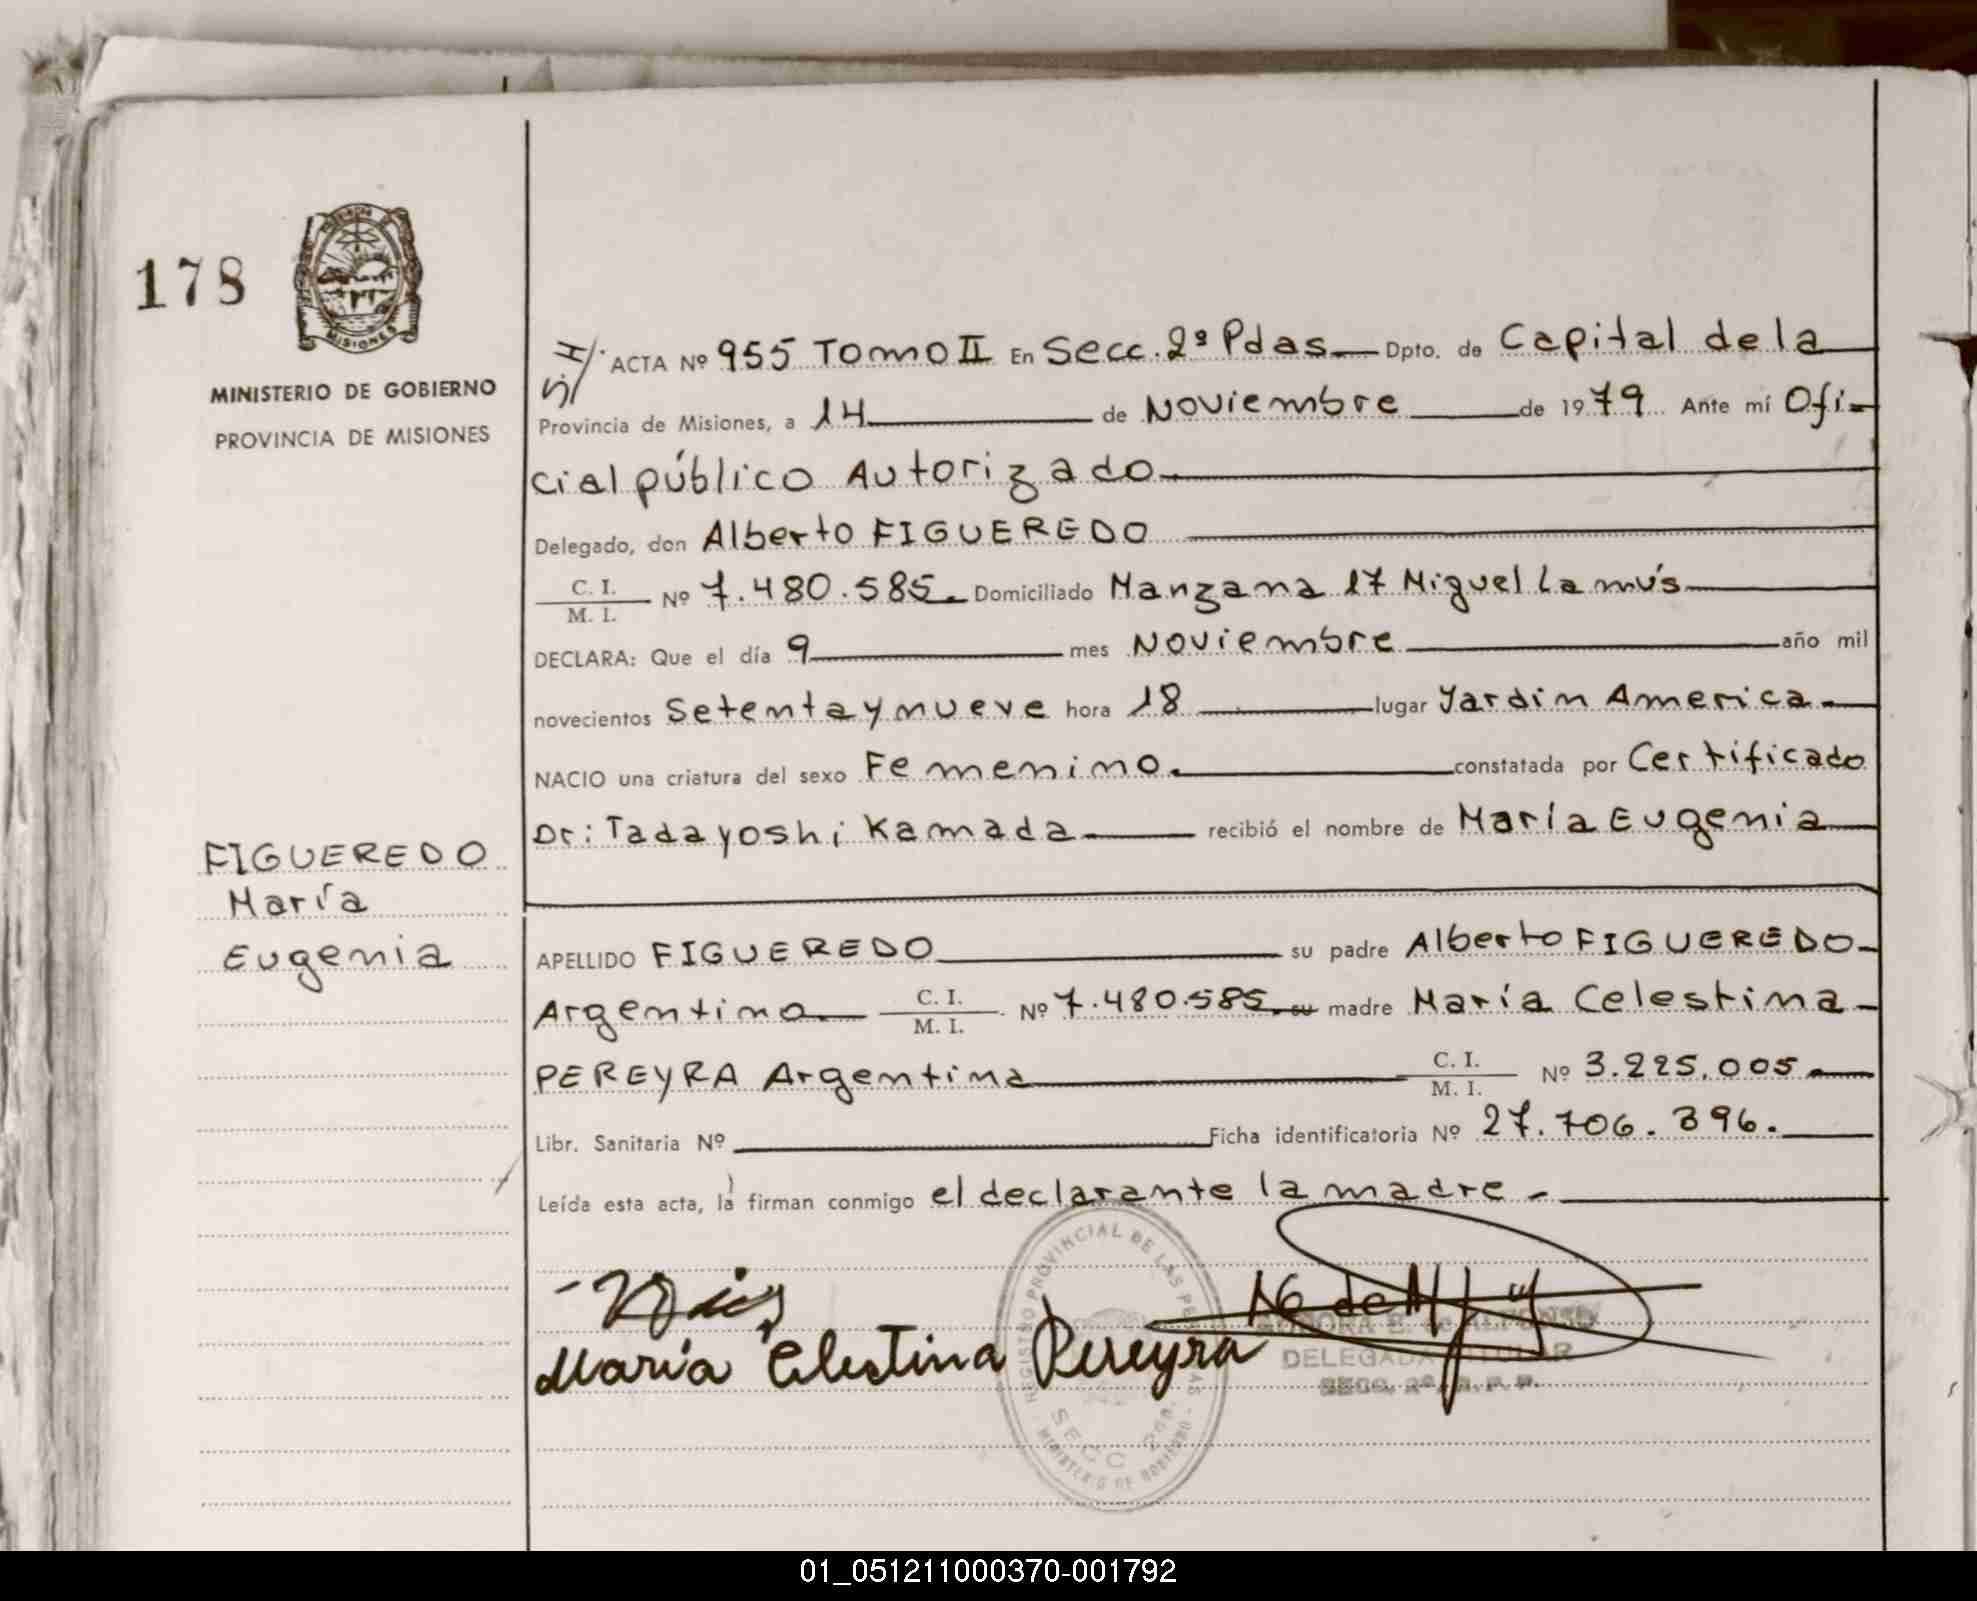 178
MISIONES
MINISTERIO DE GOBIERNO
PROVINCIA DE MISIONES
FIGUEREDO
María
Eugenia
ACTA Nº 955 Tomo II En Secc. 2ª Pdas Dpto. de Capital de la
Provincia de Misiones, a 14 de Noviembre de 1979 Ante mí Ofi-
cial público Autorizado
Delegado, don Alberto FIGUEREDO
C. I.
M. I. Nº 7.480.585. Domiciliado Manzana 17 Miguel Lamús
DECLARA: Que el día 9 mes Noviembre año mil
novecientos setenta y nueve hora 18 lugar Jardin America.
NACIO una criatura del sexo Femenino. constatada por Certificado
Dr: Tadayoshi Kamada recibió el nombre de María Eugenia
APELLIDO FIGUEREDO su padre Alberto FIGUEREDO
Argentino C. I.
M. I. Nº 7.480.585. su madre María Celestina
PEREYRA Argentina C. I.
M. I. Nº 3.225.005.
Libr. Sanitaria Nº Ficha identificatoria Nº 27.706.396.
Leída esta acta, la firman conmigo el declarante la madre.
María Celestina Pereyra
REGISTRO PROVINCIAL DE LAS PERSONAS
SECC 2da.
MINISTERIO DE GOBIERNO
AURORA E. de ALFONSO
DELEGADA TITULAR
SECC. 2ª. R. P. P.
01_051211000370-001792